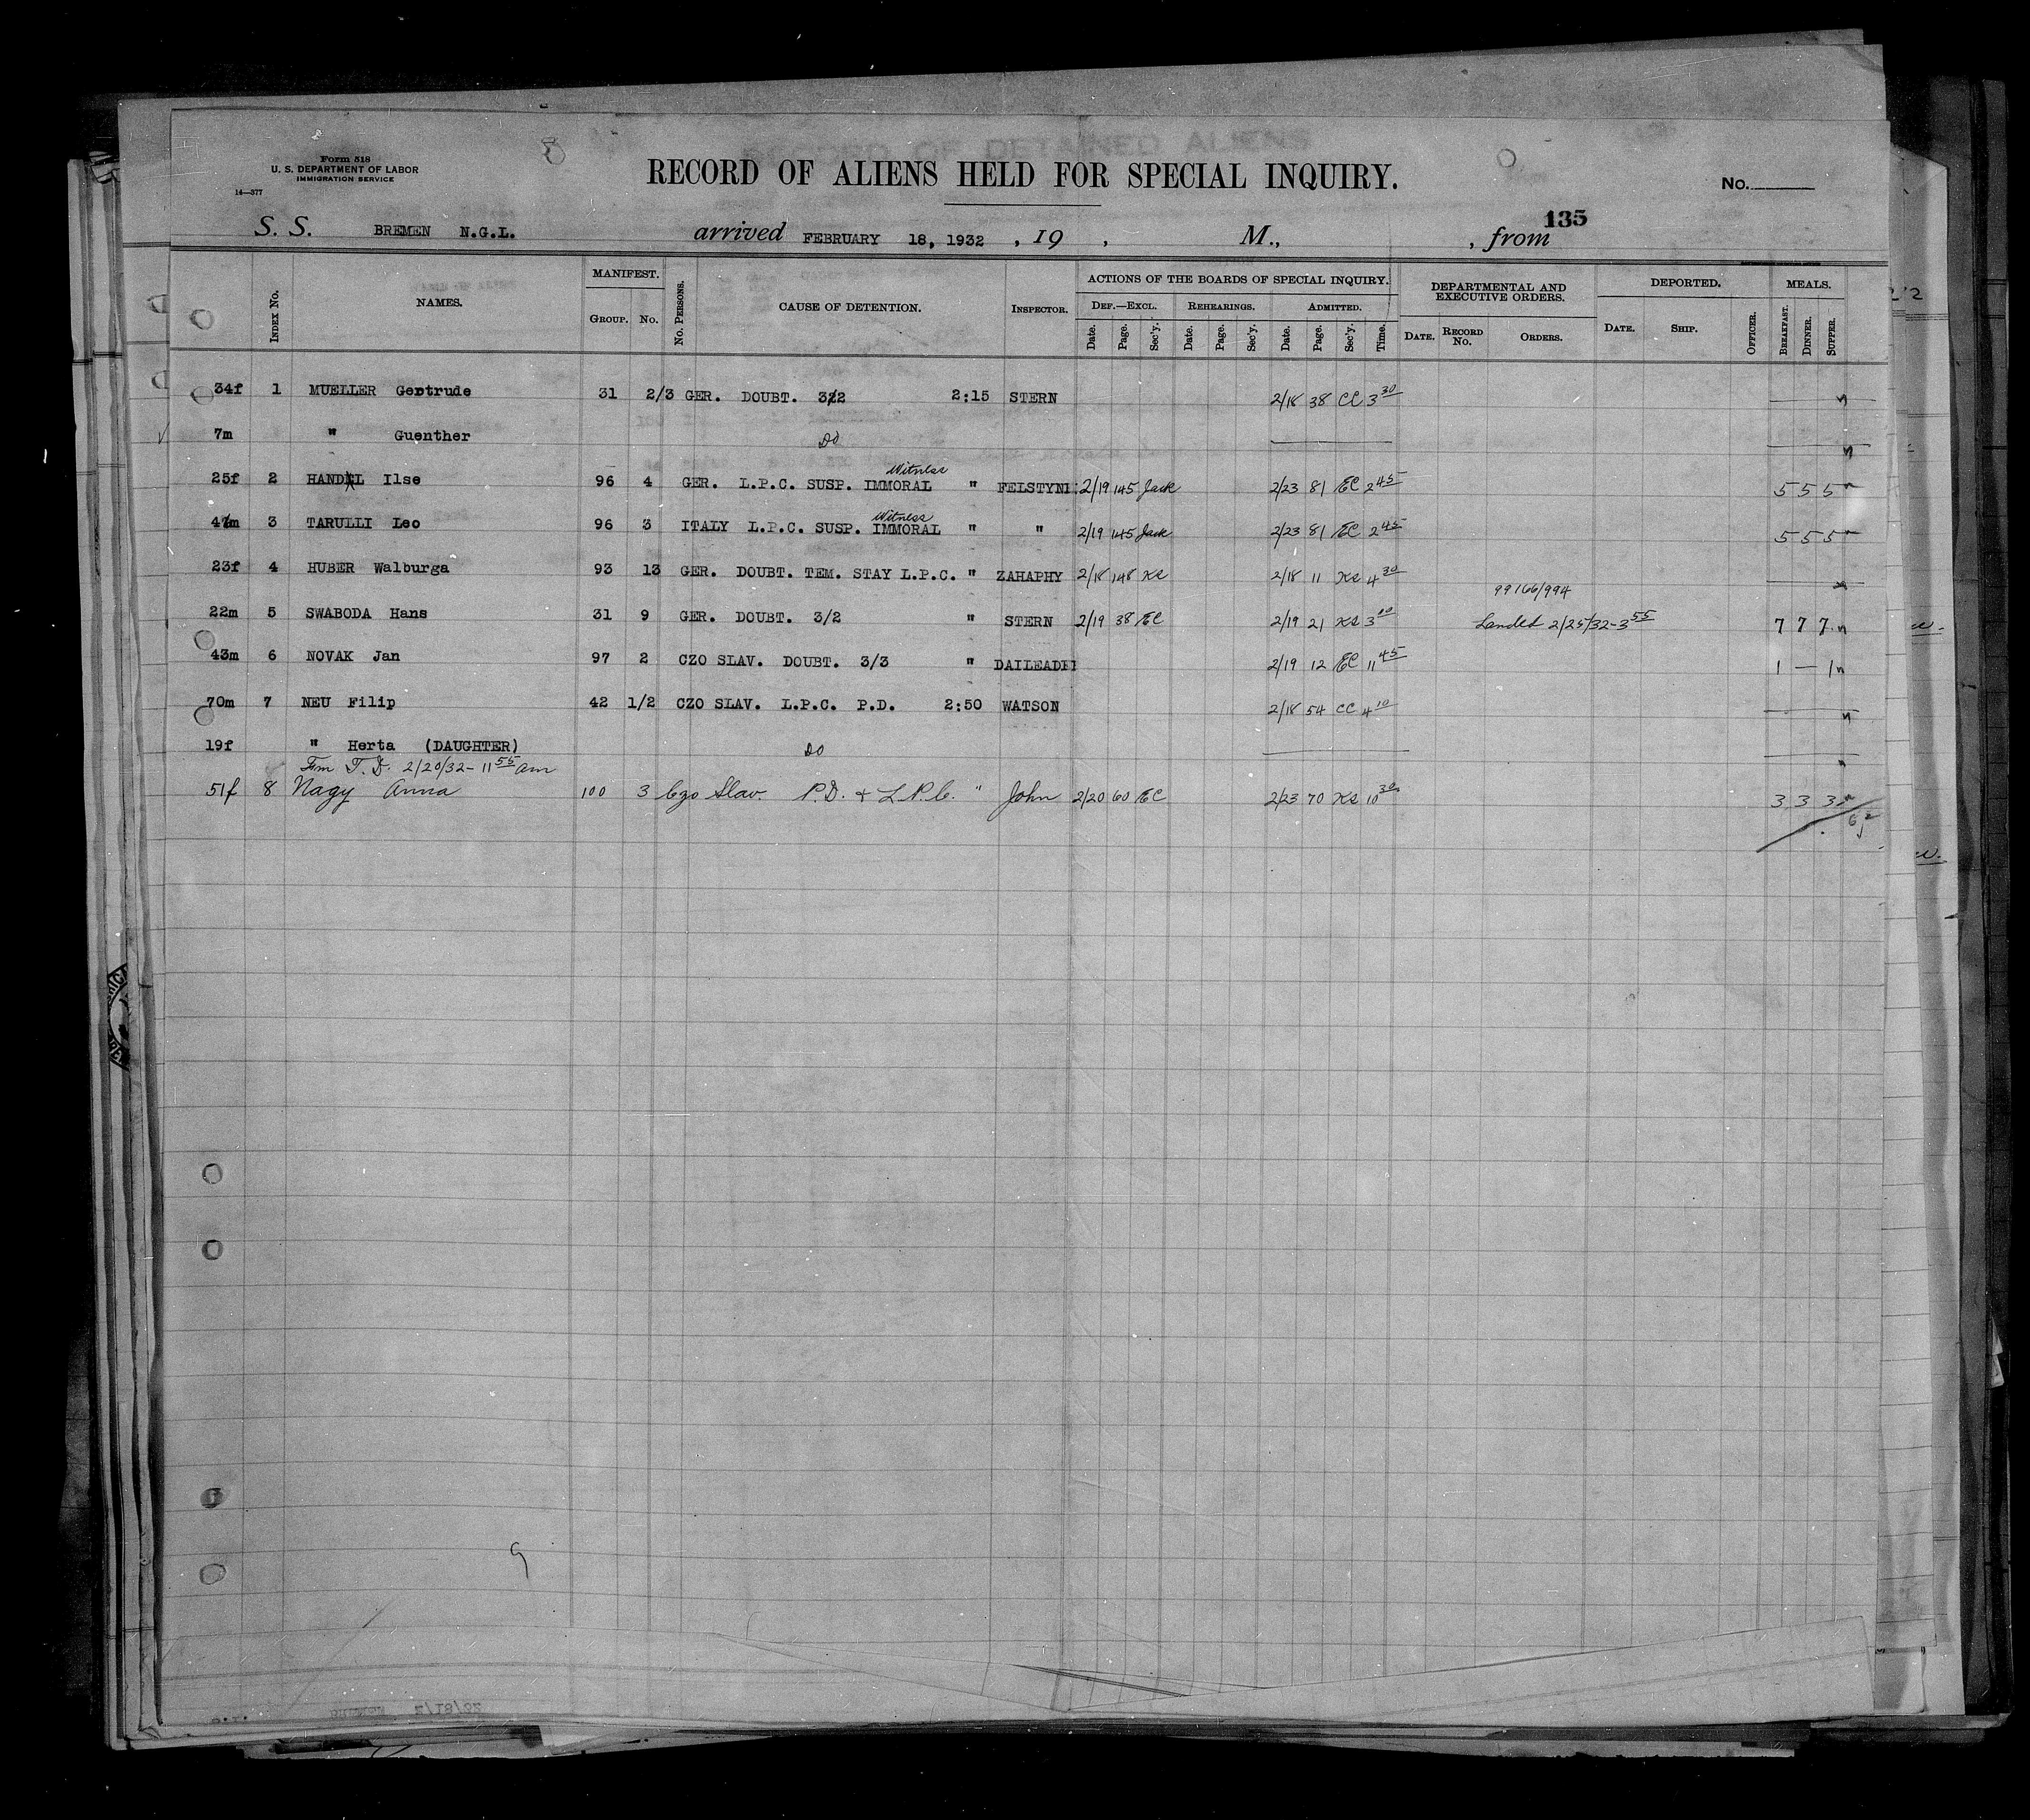 Form 518
U. S. DEPARTMENT OF LABOR
IMMIGRATION SERVICE
14—377
RECORD OF DETAINED ALIENS
RECORD OF ALIENS HELD FOR SPECIAL INQUIRY.
No.
135
S. S. BREMEN N.G.L. arrived FEBRUARY 18, 1932 , 19 , M., , from
INDEX No. NAMES. MANIFEST. GROUP. No. No. PERSONS. CAUSE OF DETENTION. INSPECTOR. ACTIONS OF THE BOARDS OF SPECIAL INQUIRY. DEPARTMENTAL AND EXECUTIVE ORDERS. DEPORTED. MEALS.
DEF.—EXCL. REHEARINGS. ADMITTED.
Date. Page. Sec'y. Date. Page. Sec'y. Date. Page. Sec'y. Time. DATE. RECORD No. ORDERS. DATE. SHIP. OFFICER. BREAKFAST. DINNER. SUPPER.
34f 1 MUELLER Gertrude 31 2/3 GER. DOUBT. 3/2 2:15 STERN 2/18 38 CC 3 30
7m " Guenther DO
Witness
25f 2 HANDL Ilse 96 4 GER. L.P.C. SUSP. IMMORAL " FELSTYNE 2/19 145 Jack 2/23 81 EC 2 45 5 5 5
Witness
47m 3 TARULLI Leo 96 3 ITALY L.P.C. SUSP. IMMORAL " " 2/19 145 Jack 2/23 81 EC 2 45 5 5 5
23f 4 HUBER Walburga 93 13 GER. DOUBT. TEM. STAY L.P.C. " ZAHAPHY 2/18 148 KS 2/18 11 KS 4 30
99166/994
22m 5 SWABODA Hans 31 9 GER. DOUBT. 3/2 " STERN 2/19 38 EC 2/19 21 KS 3 10 Landed 2/25/32-3 55 7 7 7 n
43m 6 NOVAK Jan 97 2 CZO SLAV. DOUBT. 3/3 " DAILEADE 2/19 12 EC 11 45 1 — 1 n
70m 7 NEU Filip 42 1/2 CZO SLAV. L.P.C. P.D. 2:50 WATSON 2/18 54 CC 4 10
19f " Herta (DAUGHTER) DO
Fm T.D. 2/20/32-11 55 am
51f 8 Nagy Anna 100 3 Czo Slav. P.D. + L.P.C. " John 2/20 60 EC 2/23 70 KS 10 30 3 3 3
9